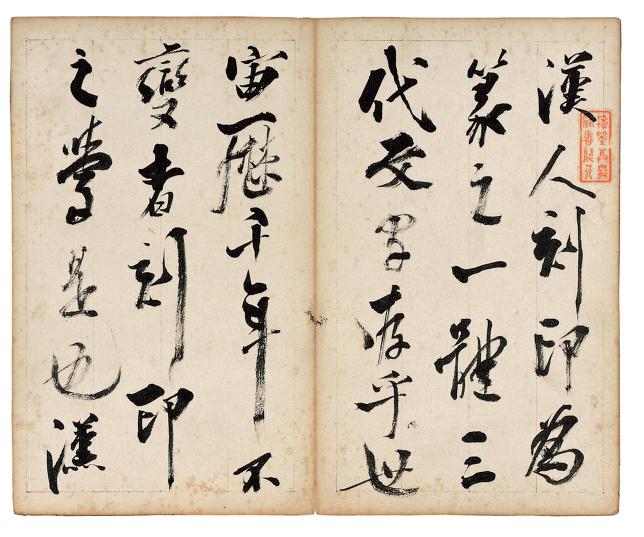 漢人刻印為
篆之一體三
代文字存乎世
宙歷千年不
變者刻印
之學是也漢